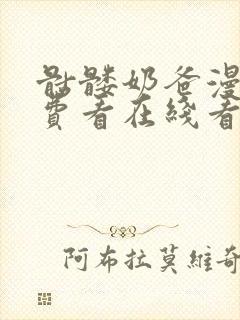 骷髅奶爸漫
费看在线看
阿布拉莫維奇